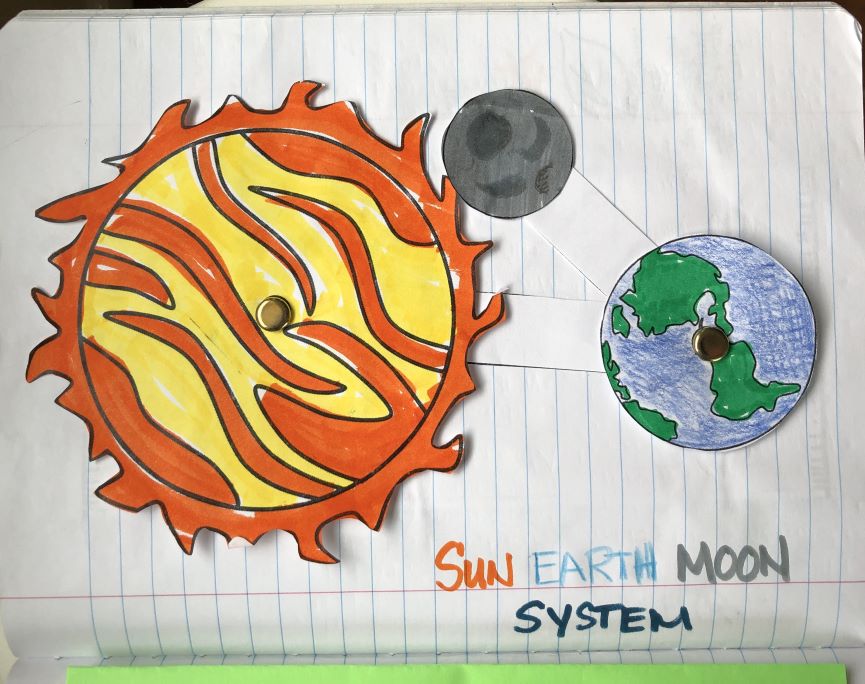 SUN EARTH MOON
SYSTEM